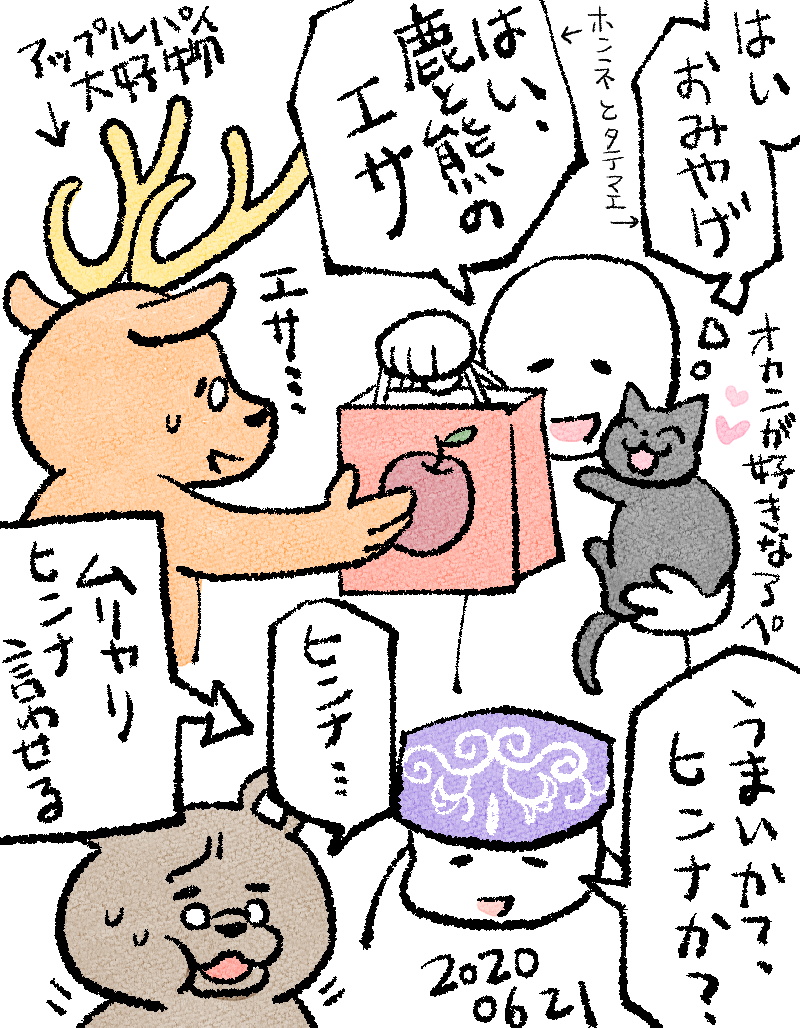 はい
おみやげ
←ホンネとタテマエ→
はい、
鹿と熊の
エサ
アップルパイ
大好物
エサ…
オカンが好きなるペ
うまいか?
ヒンナか?
ヒンナ…
ムリヤリ
ヒンナ
言わせる
2020
0621